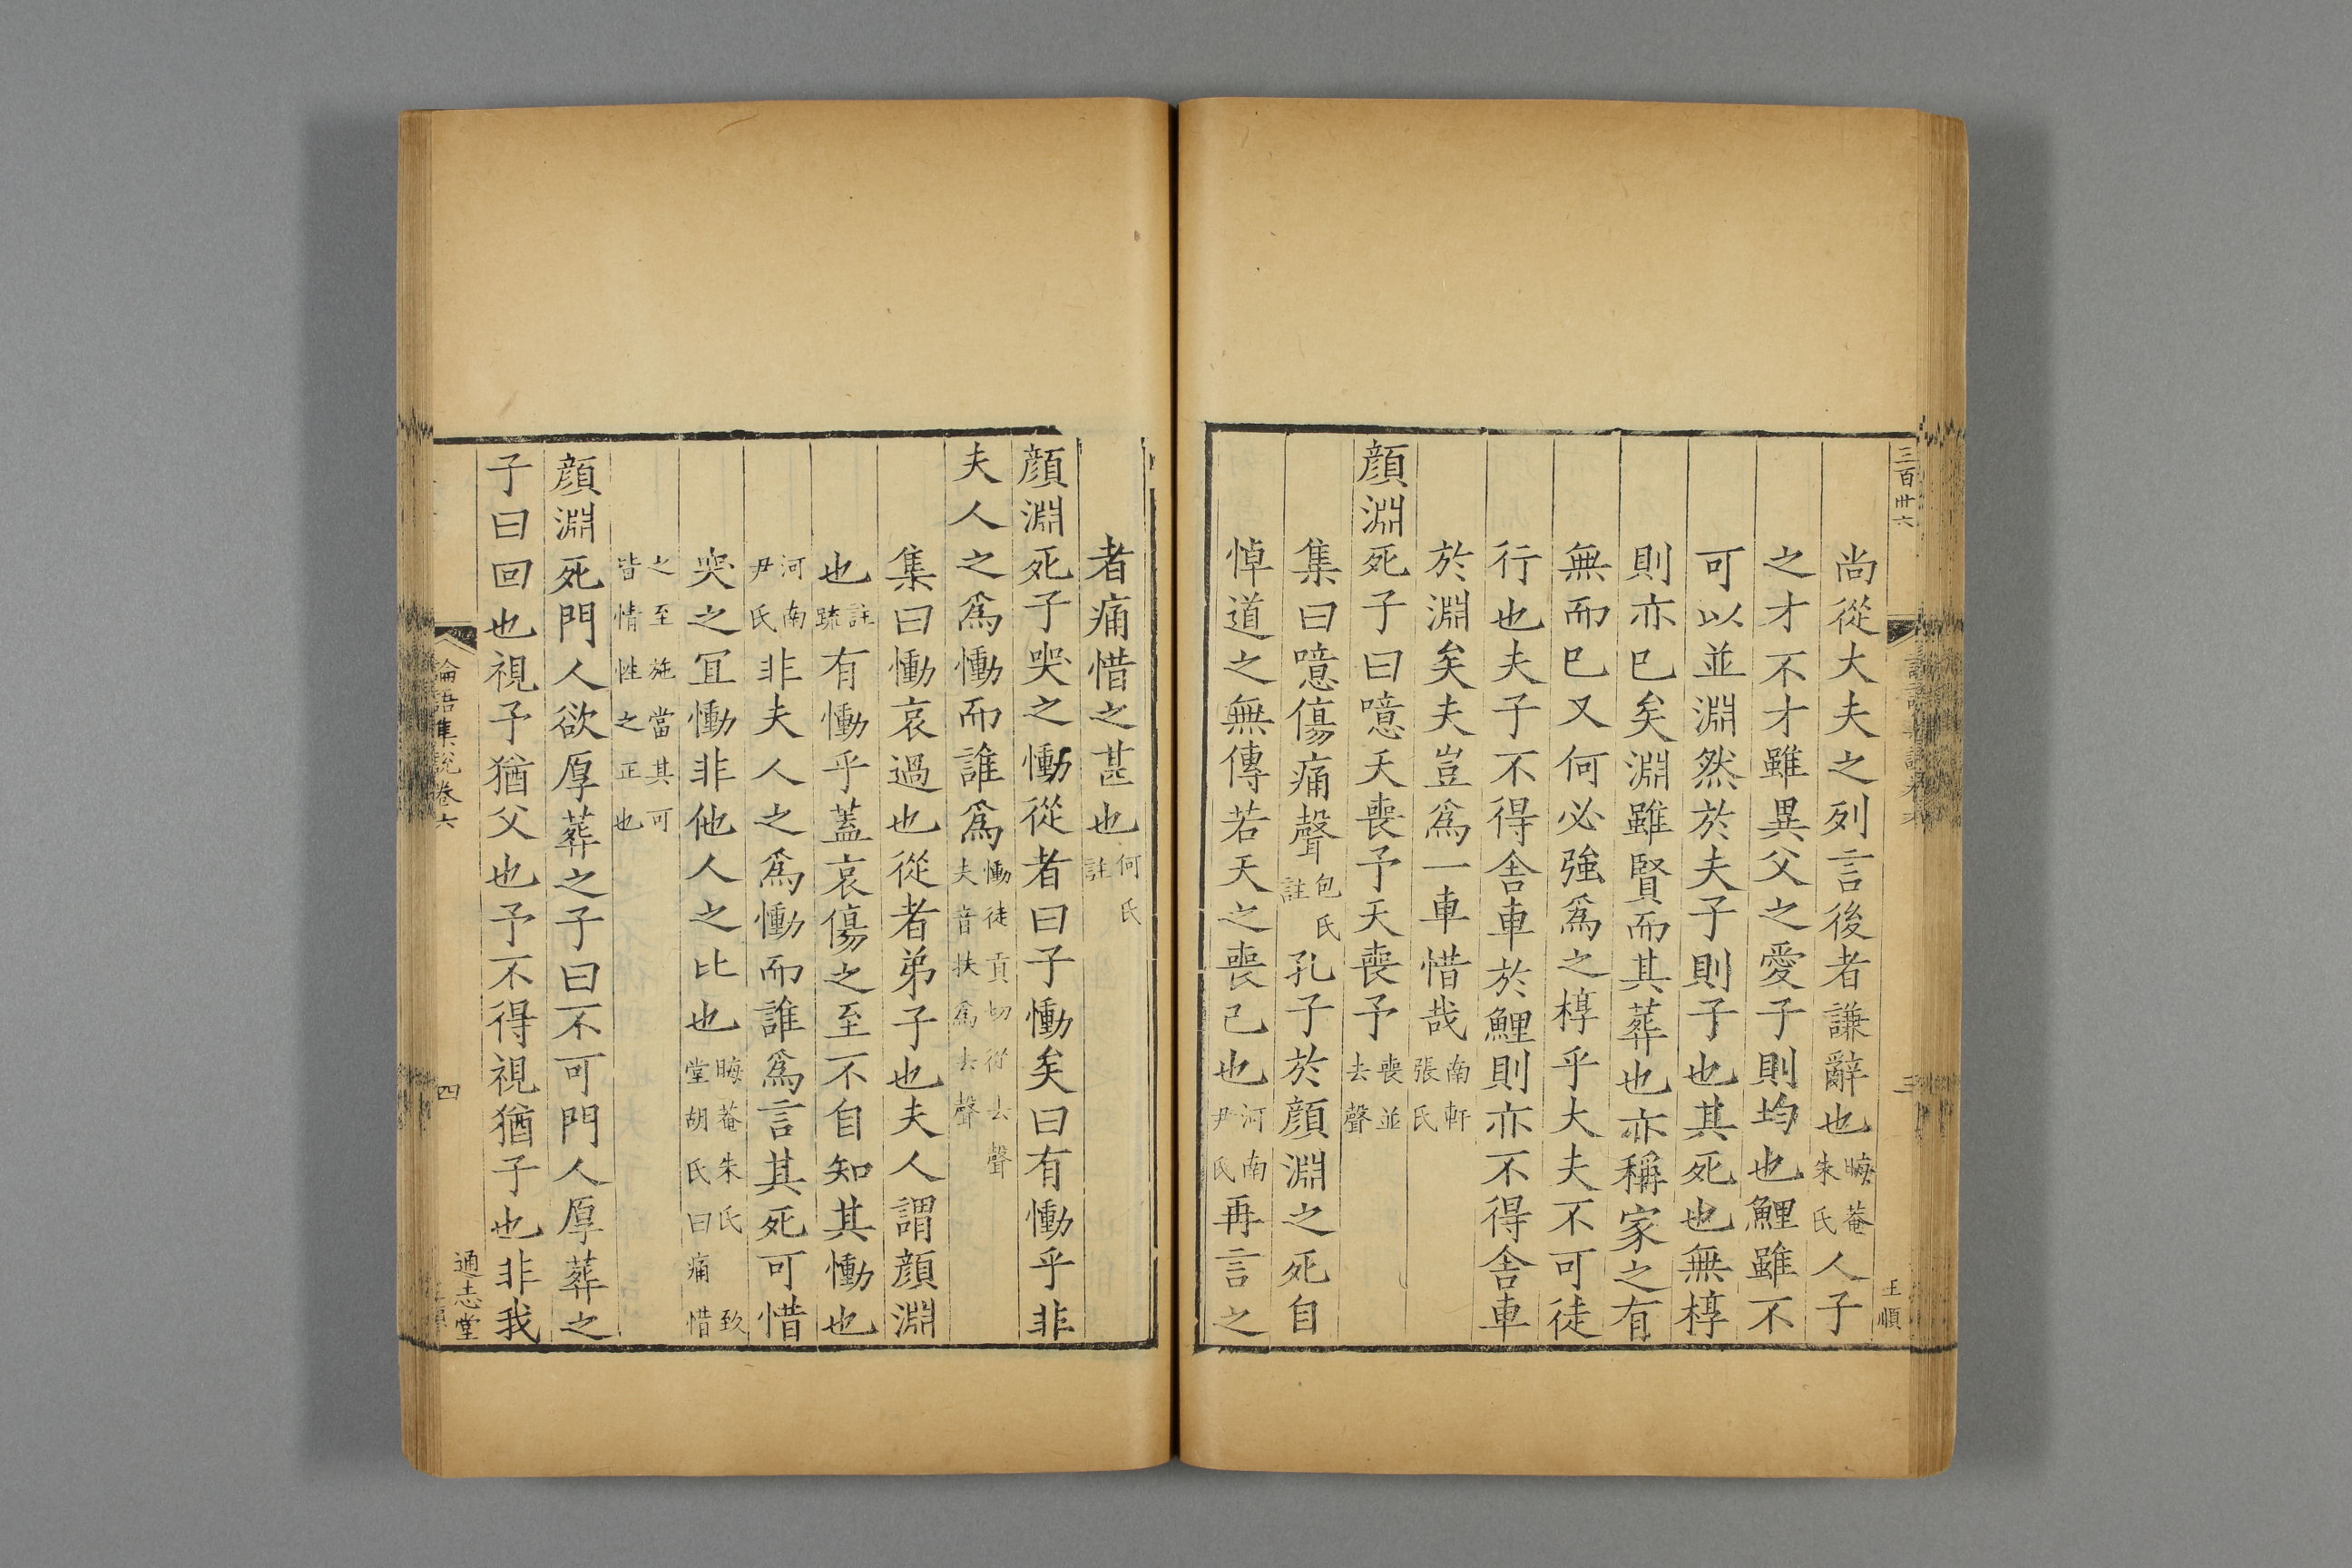 三百卅六
王順
尚從大夫之列言後者謙辭也晦菴朱氏人子
之才不才雖異父之愛子則均也鯉雖不
可以並淵然於夫子則子也其死也無椁
則亦已矣淵雖賢而其葬也亦稱家之有
無而已又何必強爲之椁乎大夫不可徒
行也夫子不得舍車於鯉則亦不得舍車
於淵矣夫豈爲一車惜哉南軒張氏
顔淵死子曰噫天喪予天喪予喪並去聲
集曰噫傷痛聲包氏註孔子於顔淵之死自
悼道之無傳若天之喪己也河南尹氏再言之
者痛惜之甚也何氏註
顔淵死子哭之慟從者曰子慟矣曰有慟乎非
夫人之爲慟而誰爲慟徒貢切從去聲夫音扶爲去聲
集曰慟哀過也從者弟子也夫人謂顔淵
也註疏有慟乎蓋哀傷之至不自知其慟也
河南尹氏非夫人之爲慟而誰爲言其死可惜
哭之宜慟非他人之比也晦菴朱氏致堂胡氏曰痛惜
之至施當其可皆情性之正也
顔淵死門人欲厚葬之子曰不可門人厚葬之
子曰回也視予猶父也予不得視猶子也非我
論語集説卷六
四
通志堂